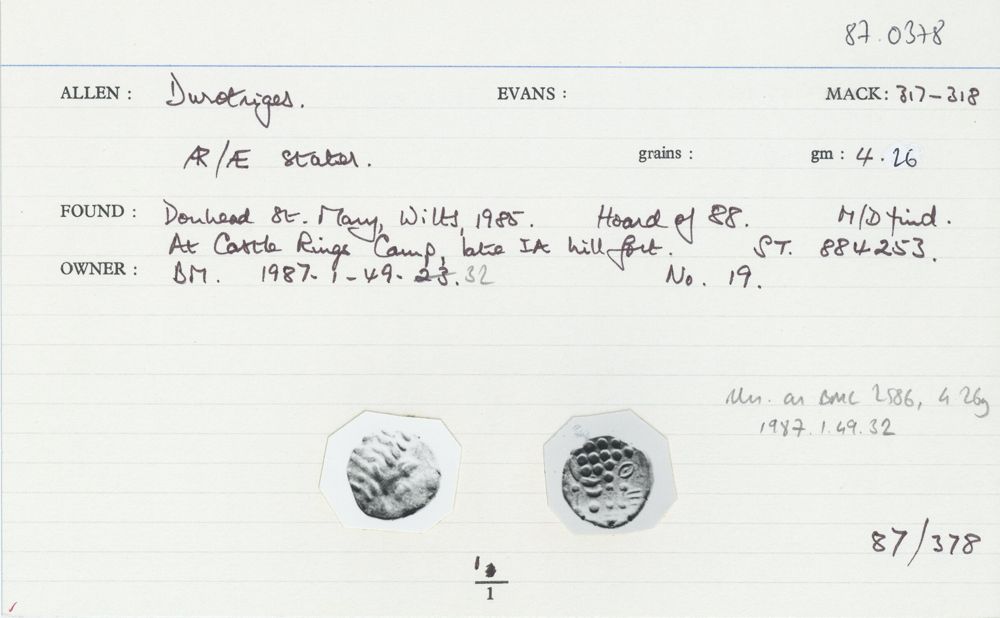 87.0378
ALLEN : Durotriges. EVANS : MACK: 317-318
AR/Æ stater. grains : gm : 4.26
FOUND : Donhead St. Mary, Wilts, 1985. Hoard of 88. M/D find.
At Castle Rings Camp, late IA hill fort. ST. 884253.
OWNER : BM. 1987-1-49-23.32 No. 19.
as BMC 2586, 4.26g
1987.1.49.32
87/378
1
1